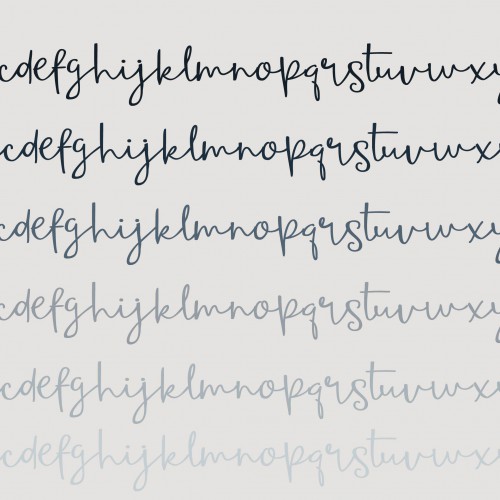 cdefghijklmnopqrstuvwxy
cdefghijklmnopqrstuvwx
cdefghijklmnopqrstuvwxy
cdefghijklmnopqrstuvwxy
cdefghijklmnopqrstuvwx
cdefghijklmnopqrstuvwx